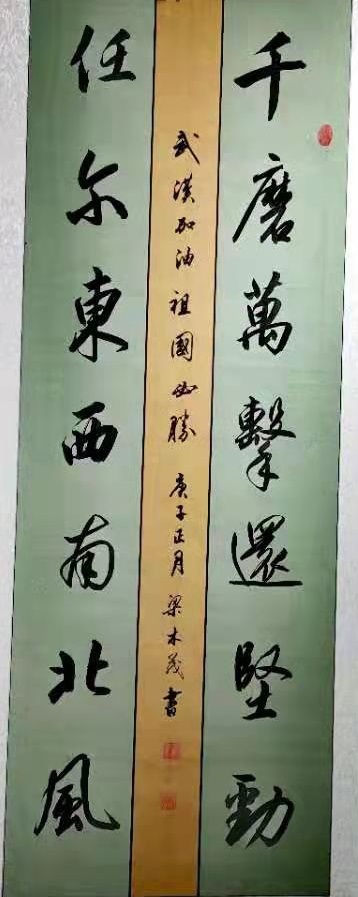 千磨萬擊還堅勁
任尔東西南北風
武漢加油祖國必勝 庚子正月 梁木茂書